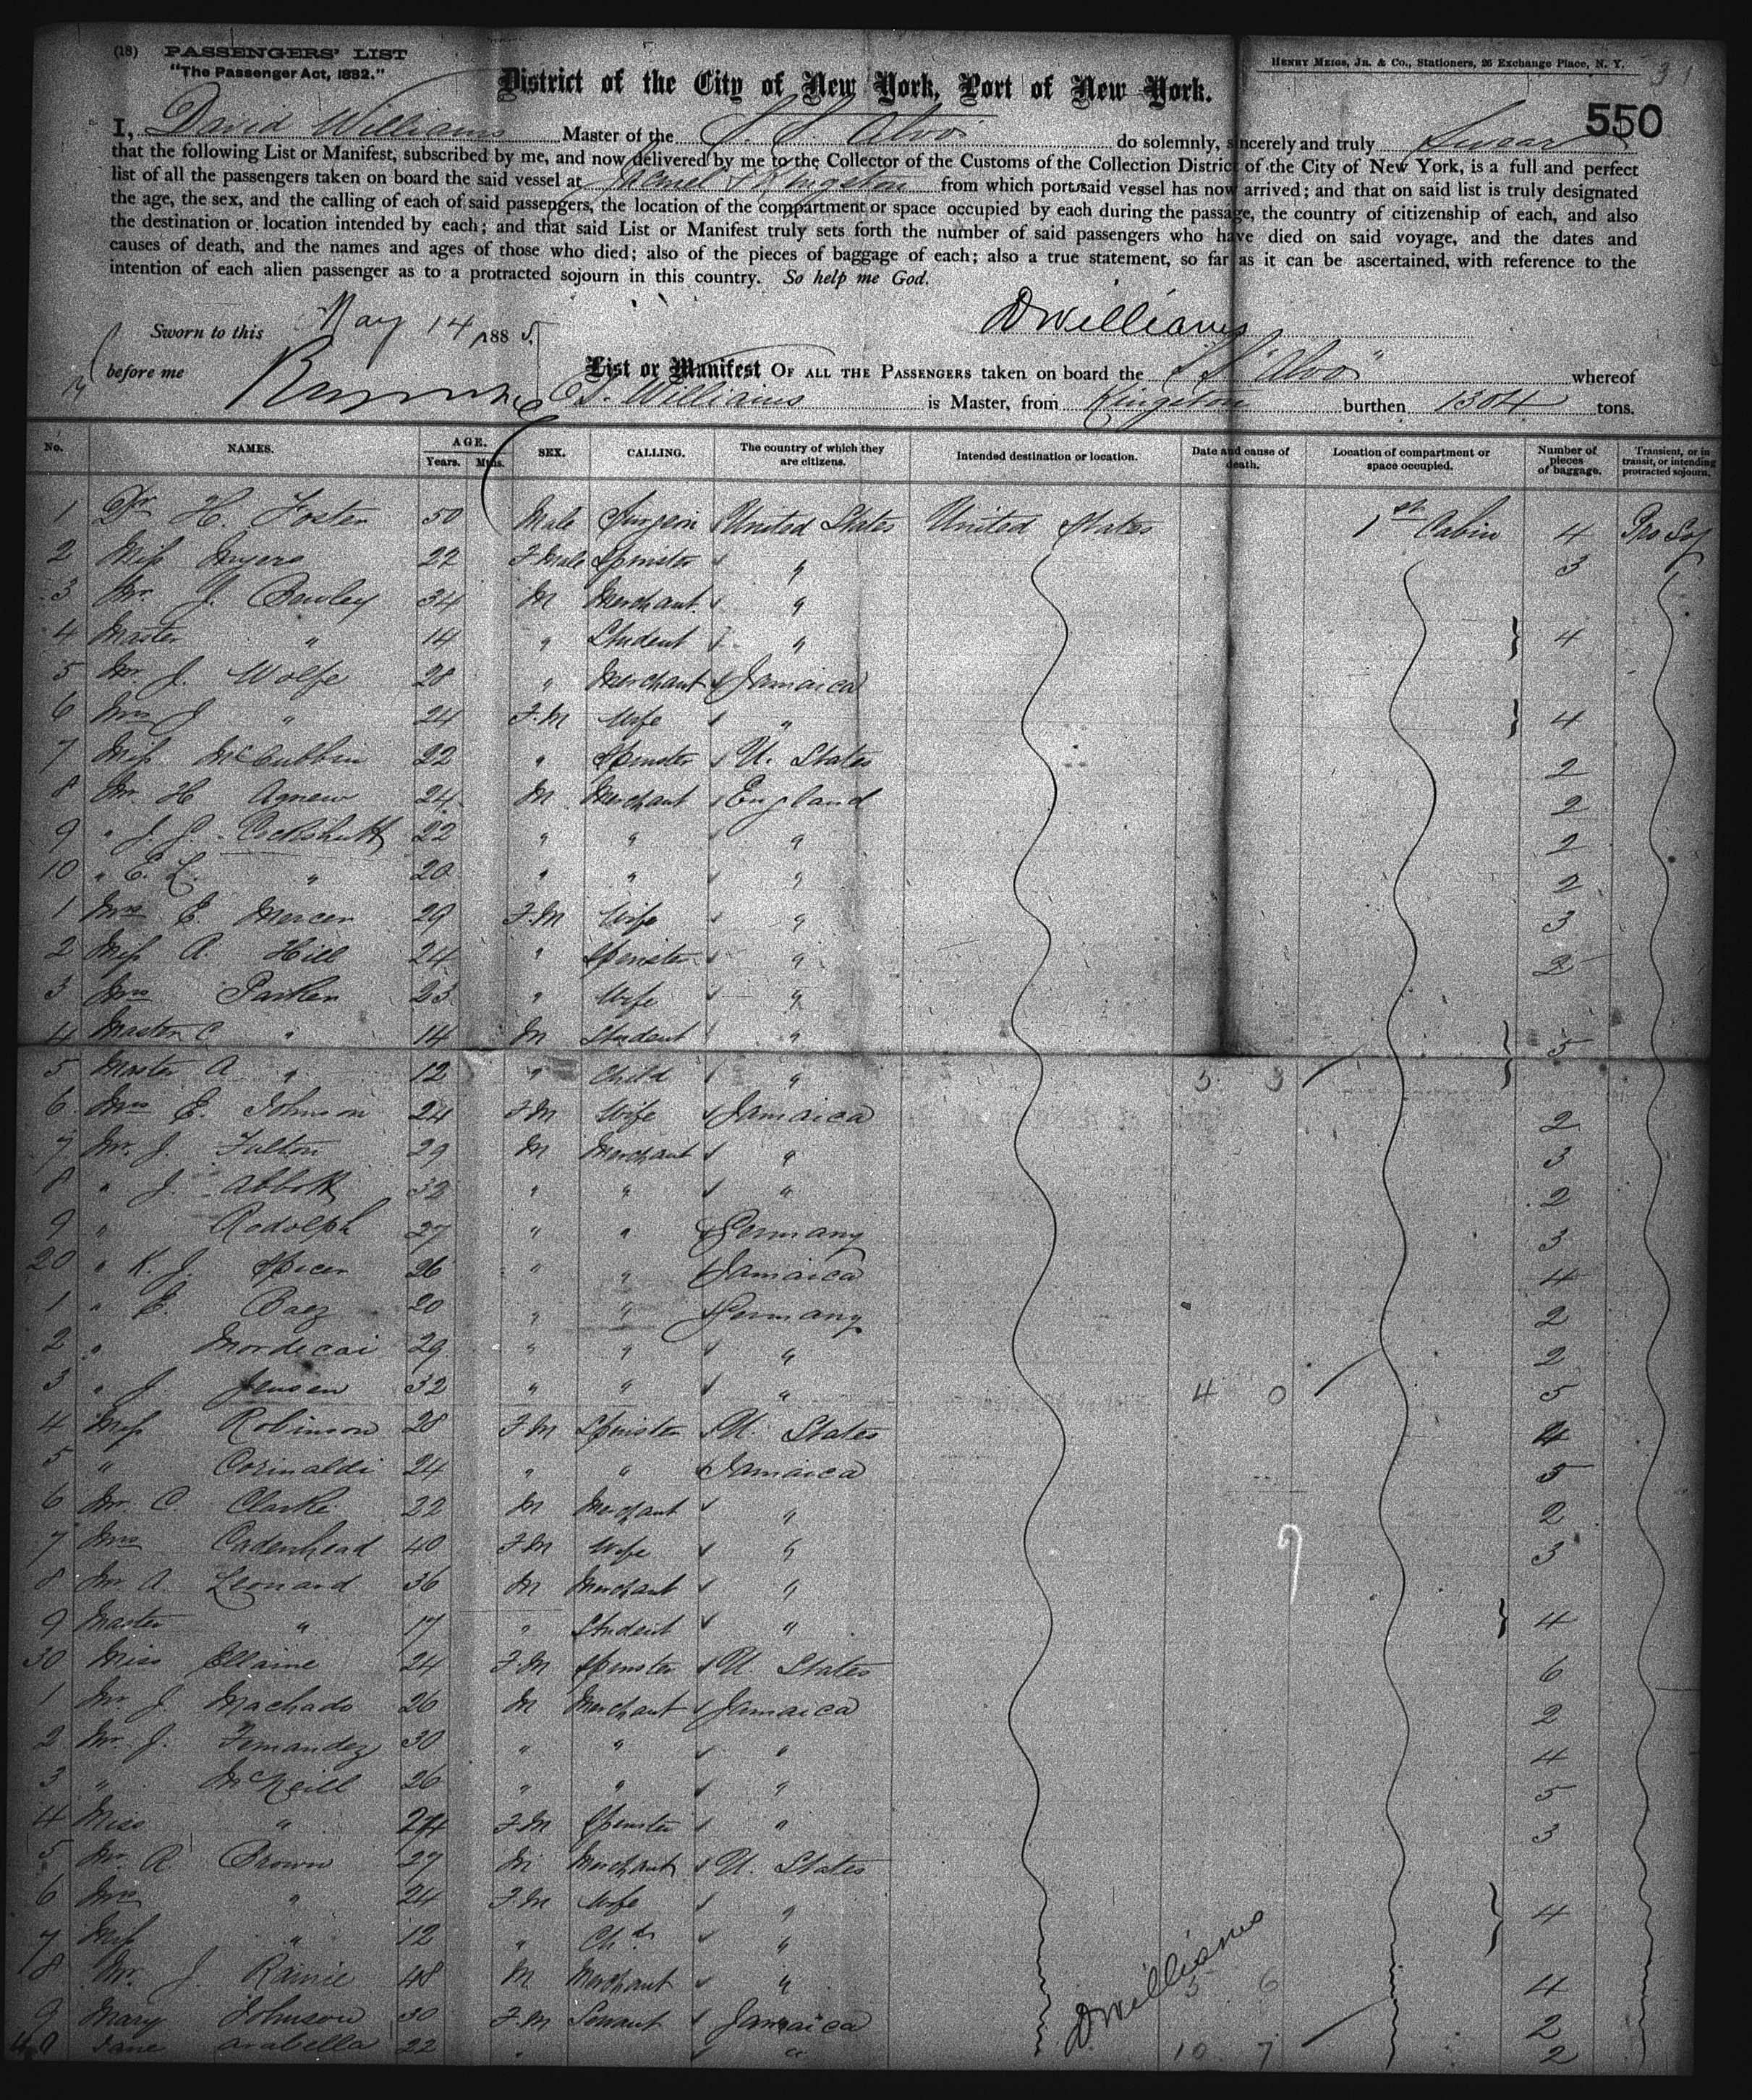 (18) PASSENGERS' LIST
"The Passenger Act, 1882."
HENRY MEIGS, JR. & CO., Stationers, 26 Exchange Place, N. Y.
31
District of the City of New York, Port of New York.
550
I, David Williams Master of the S. S. Alvo do solemnly, sincerely and truly Swear
that the following List or Manifest, subscribed by me, and now delivered by me to the Collector of the Customs of the Collection District of the City of New York, is a full and perfect
list of all the passengers taken on board the said vessel at Jacmel & Kingston from which port said vessel has now arrived; and that on said list is truly designated
the age, the sex, and the calling of each of said passengers, the location of the compartment or space occupied by each during the passage, the country of citizenship of each, and also
the destination or location intended by each; and that said List or Manifest truly sets forth the number of said passengers who have died on said voyage, and the dates and
causes of death, and the names and ages of those who died; also of the pieces of baggage of each; also a true statement, so far as it can be ascertained, with reference to the
intention of each alien passenger as to a protracted sojourn in this country. So help me God.
Sworn to this May 14 1885,
DWilliams
before me
List or Manifest OF ALL THE PASSENGERS taken on board the S S "Alvo" whereof
D. Williams is Master, from Kingston burthen 1304 tons.
No. NAMES. AGE. Years. Mths. SEX. CALLING. The country of which they are citizens. Intended destination or location. Date and cause of death. Location of compartment or space occupied. Number of pieces of baggage. Transient, or in transit, or intending protracted sojourn.
1 Dr H. Foster 50 Male Surgeon United States United States 1st Cabin 4 Pro Soj
2 Miss Myers 22 F.Male Spinster " 3
3 Mr J. Bewley 34 M Merchant "
4 Master " 14 " Student " 4
5 Mr J. Wolfe 28 " Merchant Jamaica
6 Mrs J " 24 F.M Wife " 4
7 Miss McCubbin 22 " Spinster U. States 2
8 Mr H Agnew 24 M Merchant England 2
9 " J. P. Cockshutt 22 " " " 2
10 " E. L. " 20 " " " 2
1 Mrs E. Mercer 29 F.M Wife " 3
2 Miss A. Hill 24 " Spinster " 2
3 Mrs Parker 23 " Wife "
4 Master C " 14 M Student " 5
5 Master A " 12 " Child " 3 3
6 Mrs E. Johnson 24 F.M Wife Jamaica 2
7 Mr. J. Fulton 29 M Merchant " 3
8 " J. Abbott 32 " " " 2
9 " Rodolph 27 " " Germany 3
20 " K. J. Spicer 26 " " Jamaica 4
1 " E. Baez 20 " " Germany 2
2 " Mordecai 29 " " " 2
3 " J Jensen 32 " " " 4 0 5
4 Miss Robinson 28 F.M Spinster U. States 4
5 " Corinaldi 24 " " Jamaica 5
6 Mr C. Clarke 22 M Merchant " 2
7 Mrs Cadenhead 40 F.M Wife " 3
8 Mr A Leonard 36 M Merchant "
9 Master " 17 " Student " 4
30 Miss Ellaine 24 F.M Spinster U. States 6
1 Mr J. Machado 26 M Merchant Jamaica 2
2 Mr. J. Fernandez 30 " " " 4
3 " McNeill 26 " " " 5
4 Miss " 24 F.M Spinster " 3
5 Mr. A Brown 27 M Merchant U. States
6 Mrs " 24 F.M Wife " 4
7 Miss " 12 " Chd "
8 Mr. J. Rainie 48 M Merchant " 5 6 4
9 Mary Johnson 30 F.M Servant Jamaica 2
40 Jane Arabella 22 " " 10 7 2
DWilliams